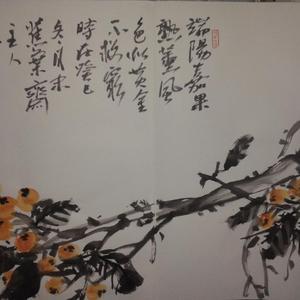 端陽嘉果
熟薰風
色似黃金
不窮
時在癸巳
冬月末
蕉葉齋
主人